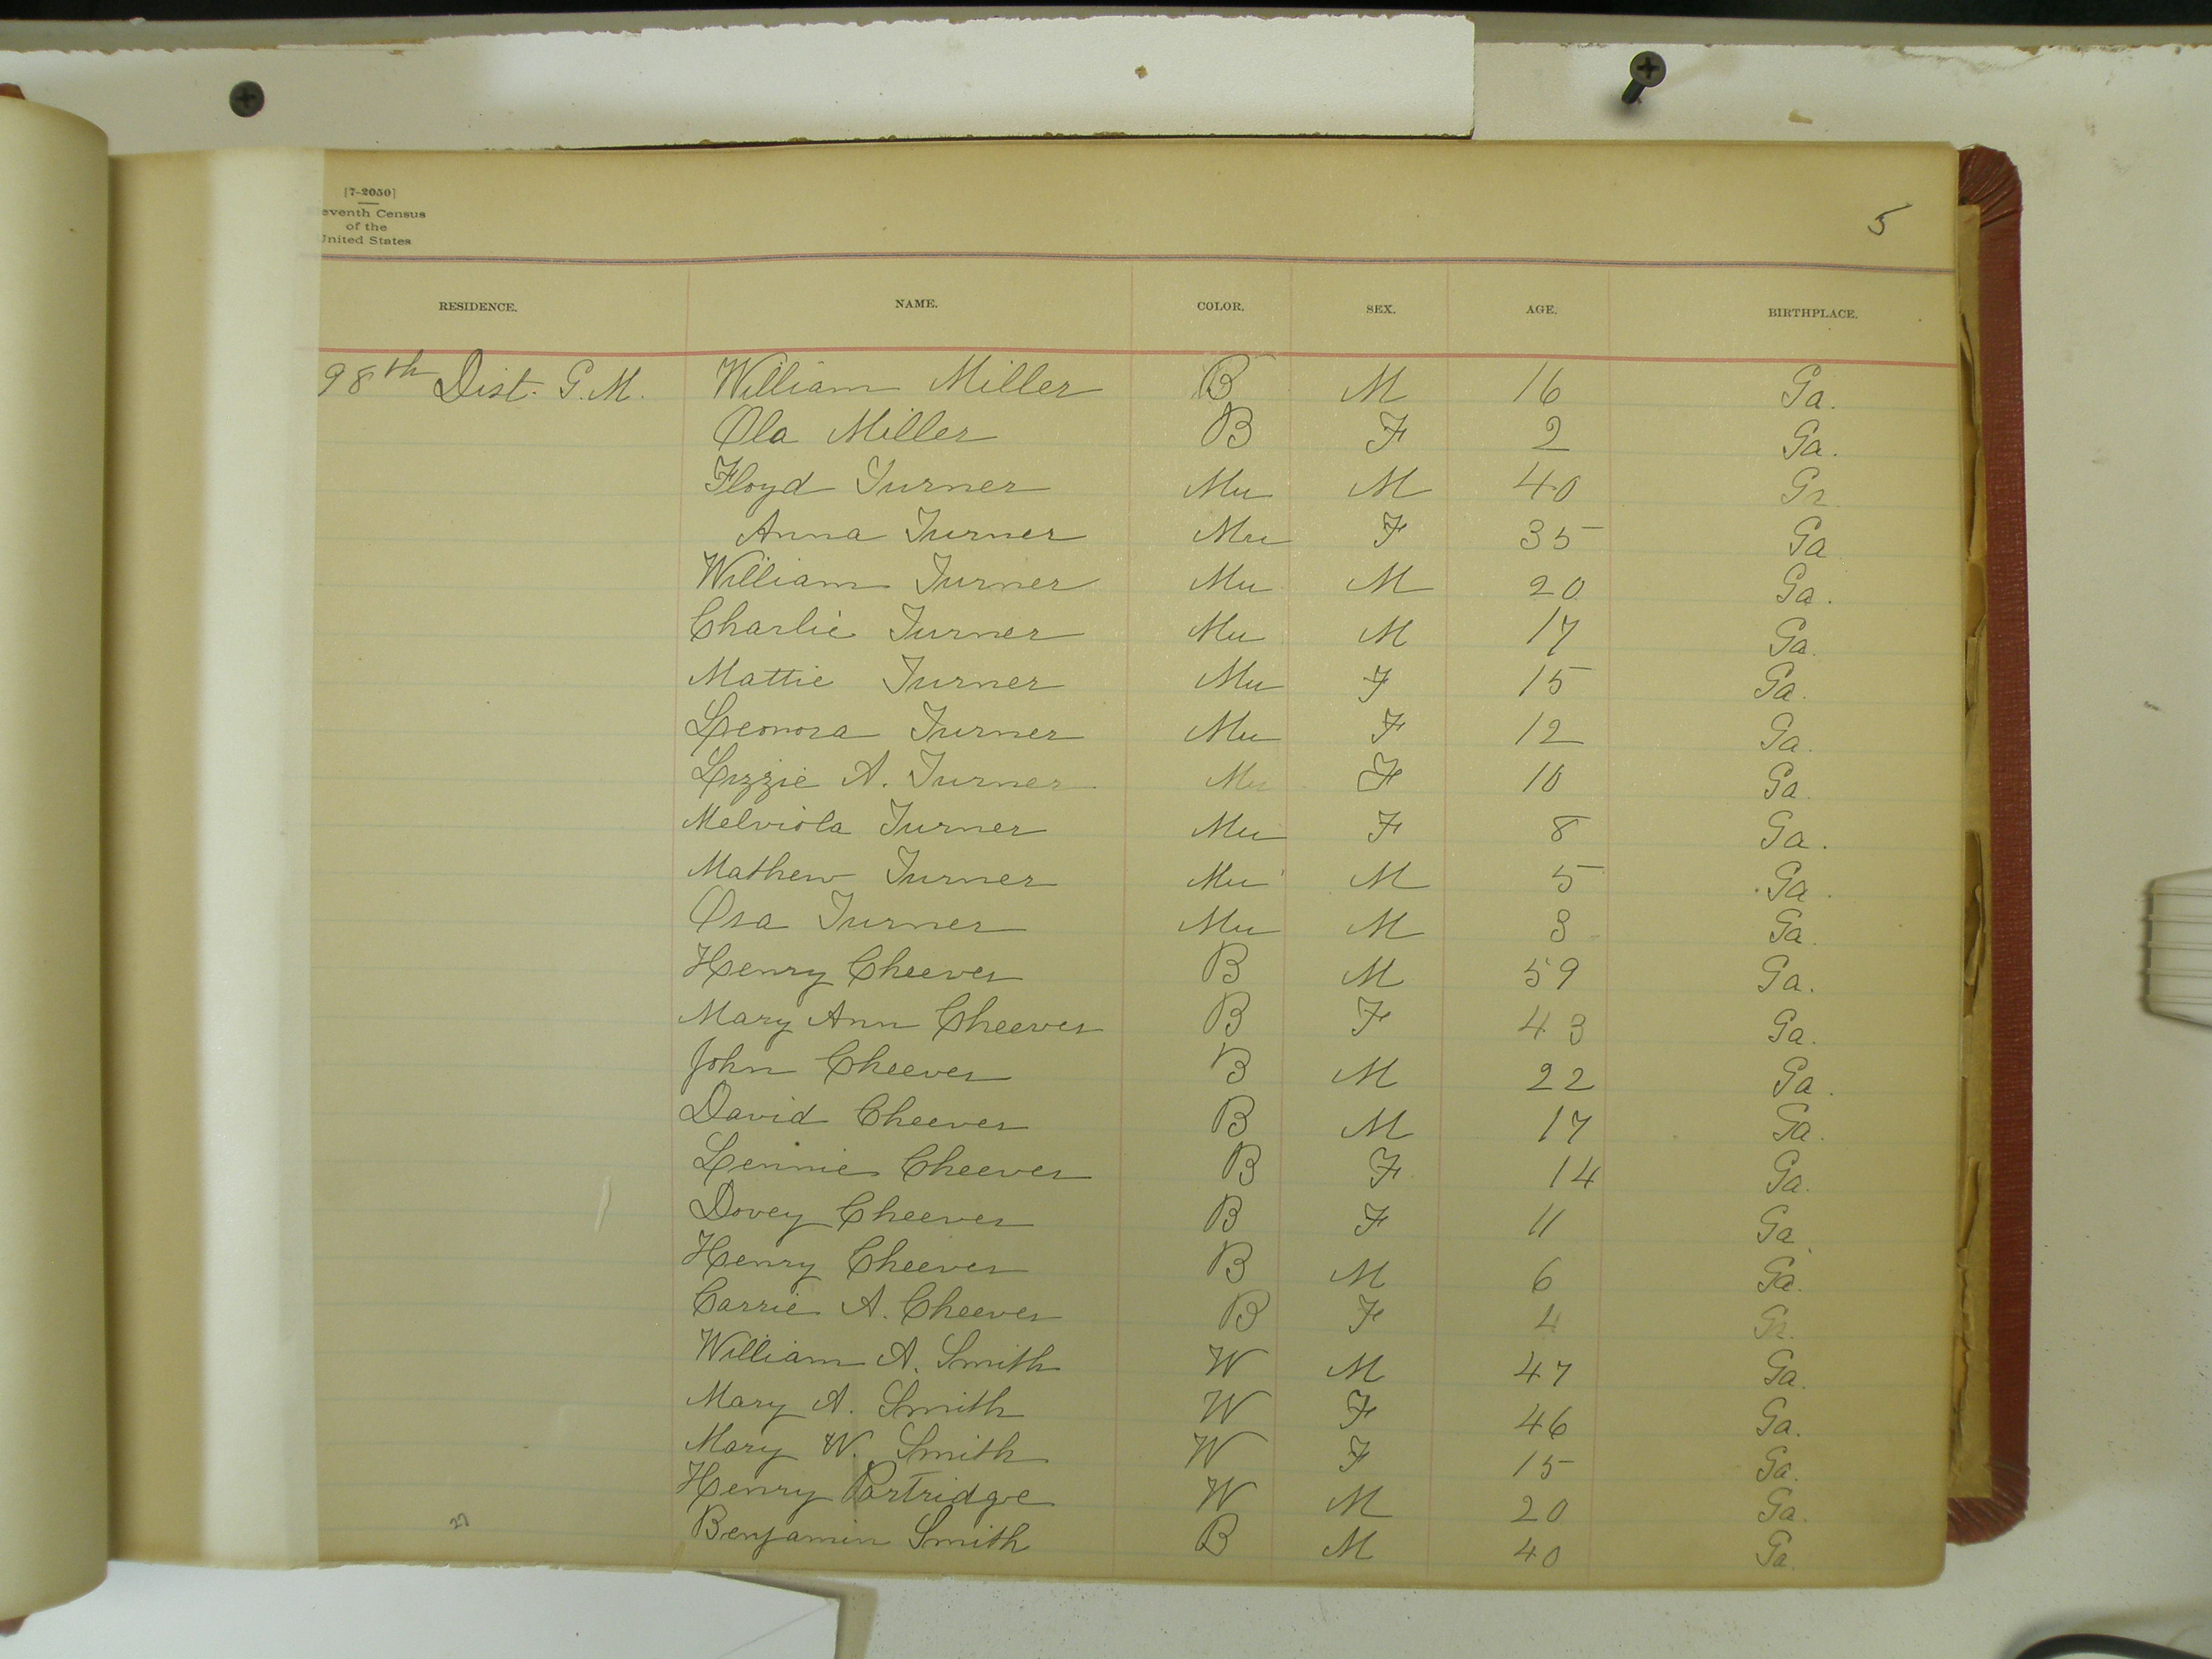 [7-2050]
eventh Census
of the
United States
5
RESIDENCE. NAME. COLOR. SEX. AGE. BIRTHPLACE.
98th Dist. G. M. William Miller B M 16 Ga.
Ola Miller B F 2 Ga.
Floyd Turner Mu M 40 Ga
Anna Turner Mu F 35 Ga
William Turner Mu M 20 Ga.
Charlie Turner Mu M 17 Ga.
Mattie Turner Mu F 15 Ga.
Leonora Turner Mu F 12 Ga.
Lizzie A. Turner Mu F 10 Ga.
Melviola Turner Mu F 8 Ga.
Mathew Turner Mu M 5 Ga.
Osa Turner Mu M 3 Ga.
Henry Cheever B M 59 Ga.
Mary Ann Cheever B F 43 Ga.
John Cheever B M 22 Ga.
David Cheever B M 17 Ga.
Lennie Cheever B F 14 Ga.
Dovey Cheever B F 11 Ga.
Henry Cheever B M 6 Ga.
Carrie A. Cheever B F 4 Ga.
William A. Smith W M 47 Ga.
Mary A. Smith W F 46 Ga.
Mary W. Smith W F 15 Ga.
Henry Partridge W M 20 Ga.
Benjamin Smith B M 40 Ga.